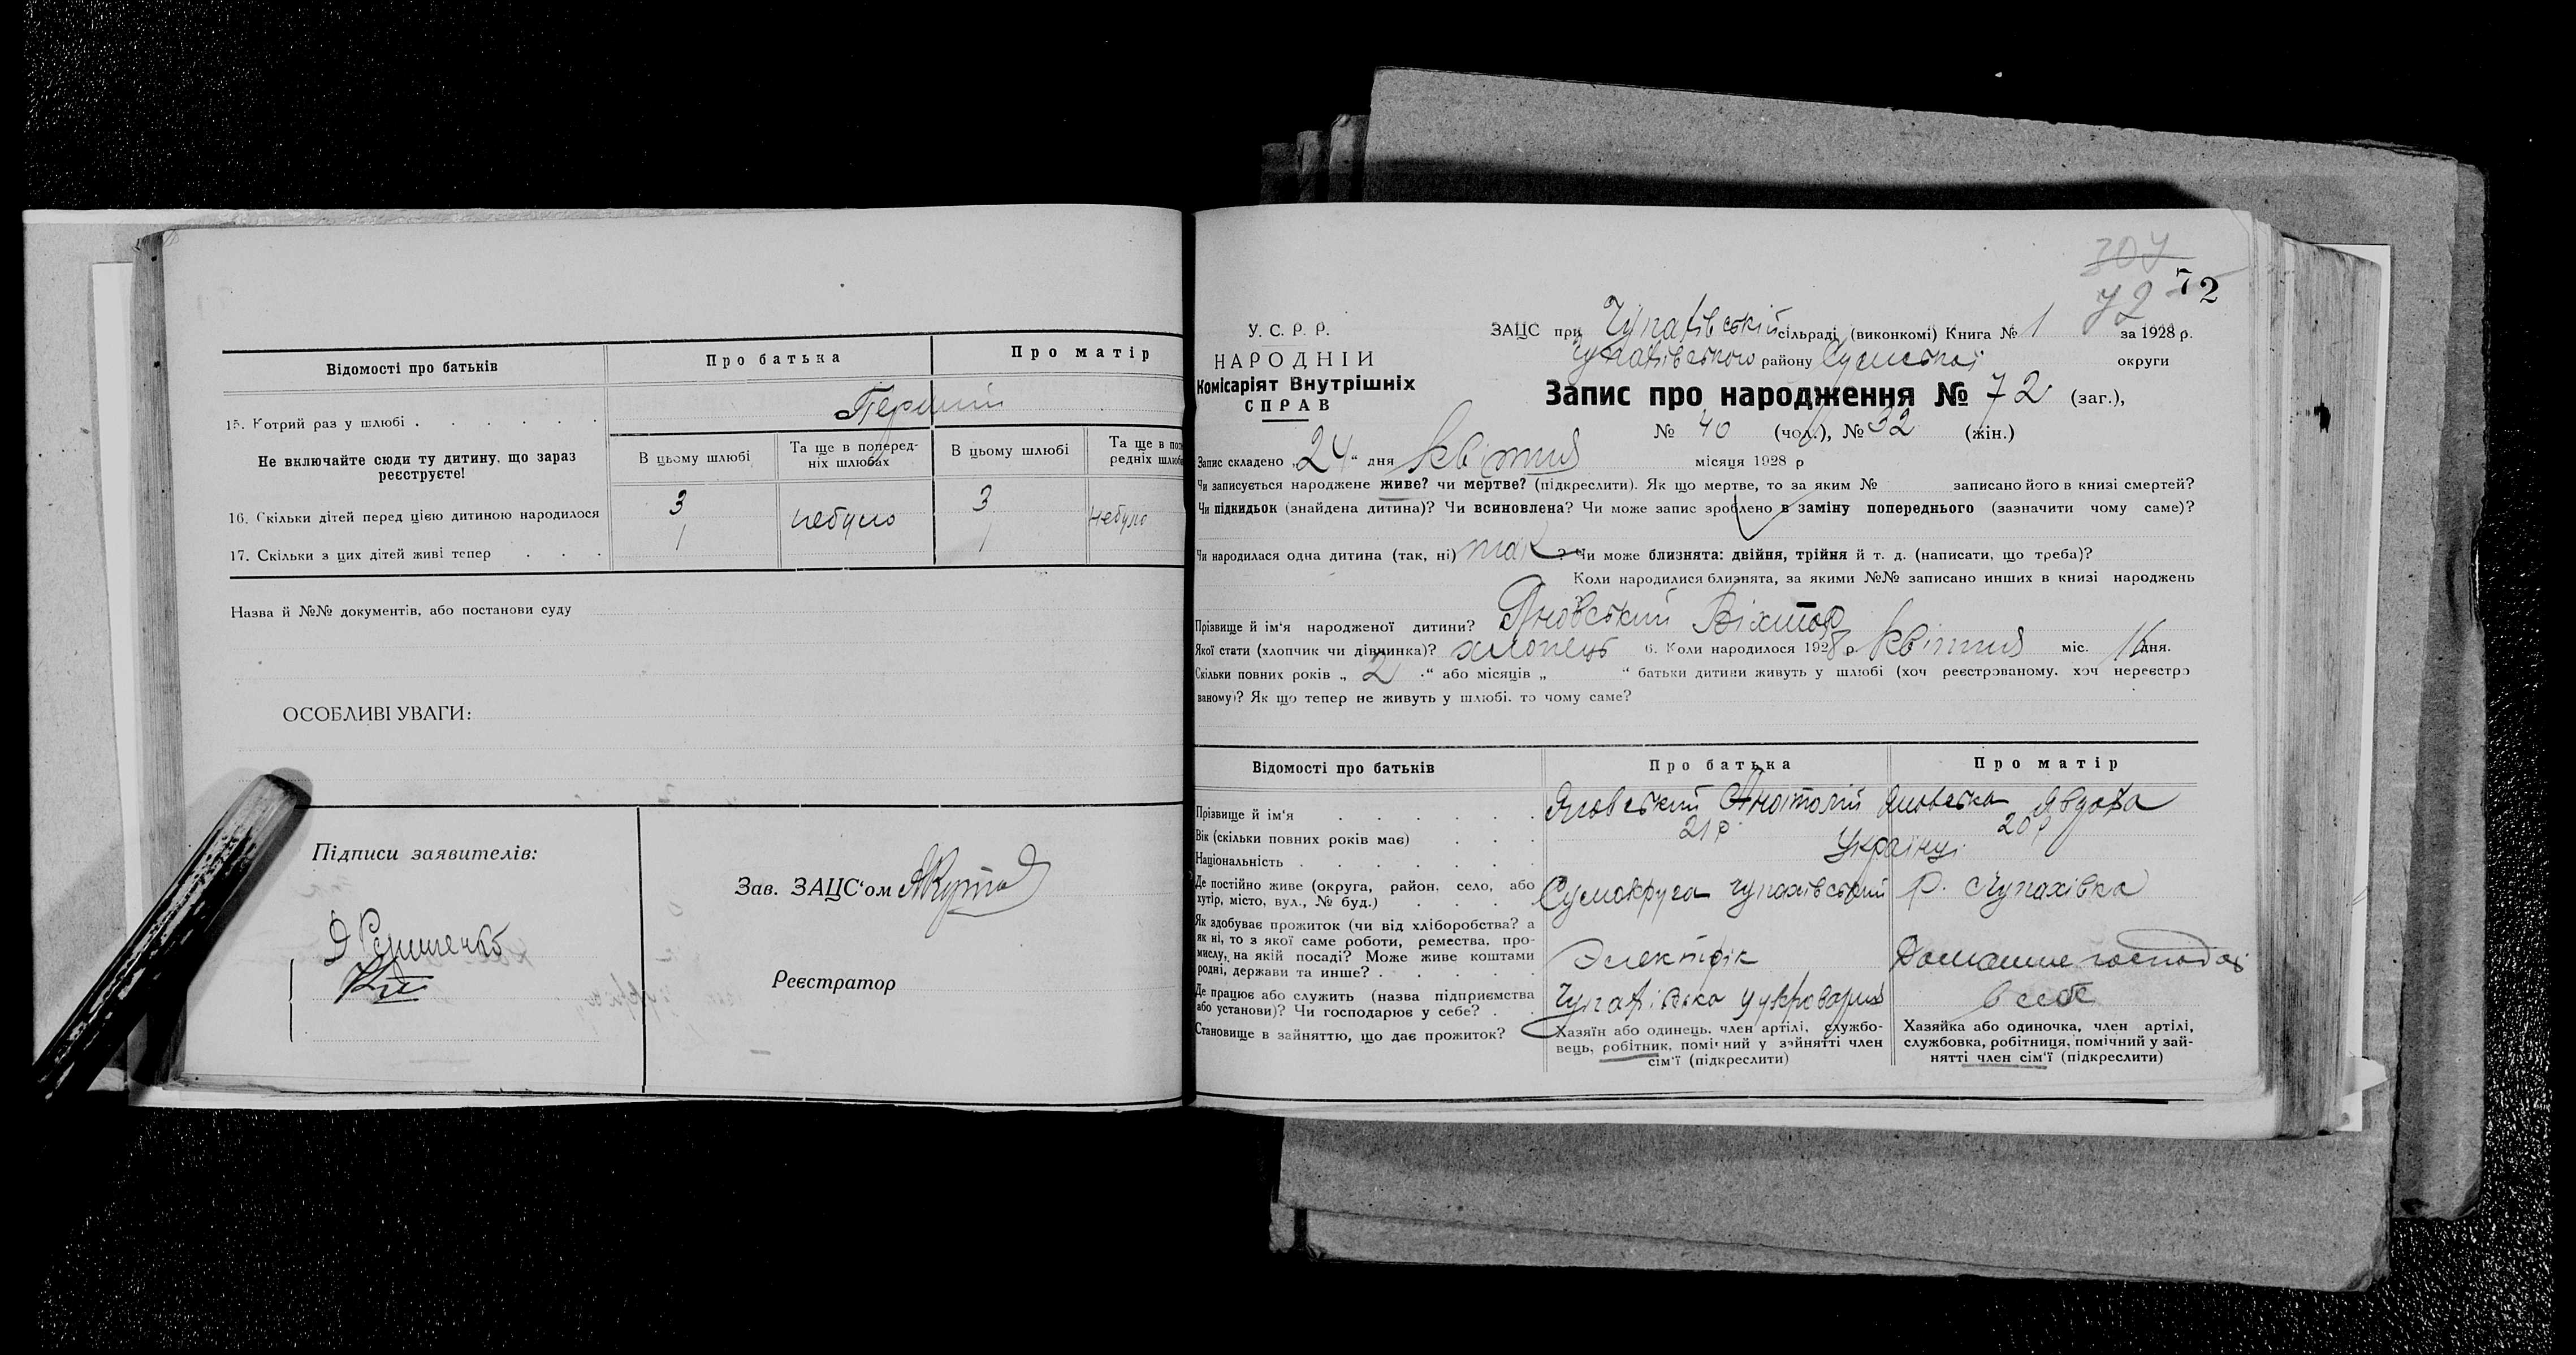 Відомості про батьків
Про батька
Про матір
15. Котрий раз у шлюбі
Перший
Не включайте сюди ту дитину, що зараз
реєструєте!
В цьому шлюбі
Та ще в поперед-
ніх шлюбах
В цьому шлюбі
Та ще в поп
редніх шлюб
16. Скільки дітей перед цією дитиною народилося
3
небуло
3
небуло
17. Скільки з цих дітей живі тепер
1
1
Назва й №№ документів, або постанови суду
ОСОБЛИВІ УВАГИ:
Підписи заявителів:
Зав. ЗАЦС'ом
Реєстратор
307
72
72
У. С. Р. Р.
НАРОДНІЙ
Комісаріят Внутрішніх
СПРАВ
ЗАЦС при Чупахівській сільраді (виконкомі) Книга № 1 за 1928 р.
Чупахівського району Сумської округи
Запис про народження № 72 (заг.),
№ 40 (чол.), № 32 (жін.)
Запис складено „24“ дня квітня місяця 1928 р
Чи записується народжене живе? чи мертве? (підкреслити). Як що мертве, то за яким № записано його в книзі смертей?
Чи підкидьок (знайдена дитина)? Чи всиновлена? Чи може запис зроблено в заміну попереднього (зазначити чому саме)?
Чи народилася одна дитина (так, ні) так ? Чи може близнята: двійня, трійня й т. д. (написати, що треба)?
Коли народилися близнята, за якими №№ записано инших в книзі народжень
Прізвище й ім'я народженої дитини? Яновський Віхтор
Якої стати (хлопчик чи дівчинка)? хлопець 6. Коли народилося 1928 р квітня міс. 16 дня.
Скільки повних років „ 2 “ або місяців „ “ батьки дитини живуть у шлюбі (хоч реєстрованому, хоч нереєстро
ваному)? Як що тепер не живуть у шлюбі, то чому саме?
Відомості про батьків
Про батька
Про матір
Прізвище й ім'я
Яновський Анатолій
Яновська Явдоха
Вік (скільки повних років має)
21 р
20 р
Національність
Українці
Де постійно живе (округа, район, село, або
хутір, місто, вул., № буд.)
Сумокруга Чупахівський р. с Чупахівка
Як здобуває прожиток (чи від хліборобства? а
як ні, то з якої саме роботи, ремества, про-
мислу, на якій посаді? Може живе коштами
родні, держави та инше?
Электрік
Домашне господар
Де працює або служить (назва підприємства
або установи)? Чи господарює у себе?
Чупахівська Цукроварня
в себе
Становище в зайняттю, що дає прожиток?
Хазяїн або одинець, член артілі, службо-
вець, робітник, помічний у зайнятті член
сім'ї (підкреслити)
Хазяйка або одиночка, член артілі,
службовка, робітниця, помічний у зай-
нятті член сім'ї (підкреслити)